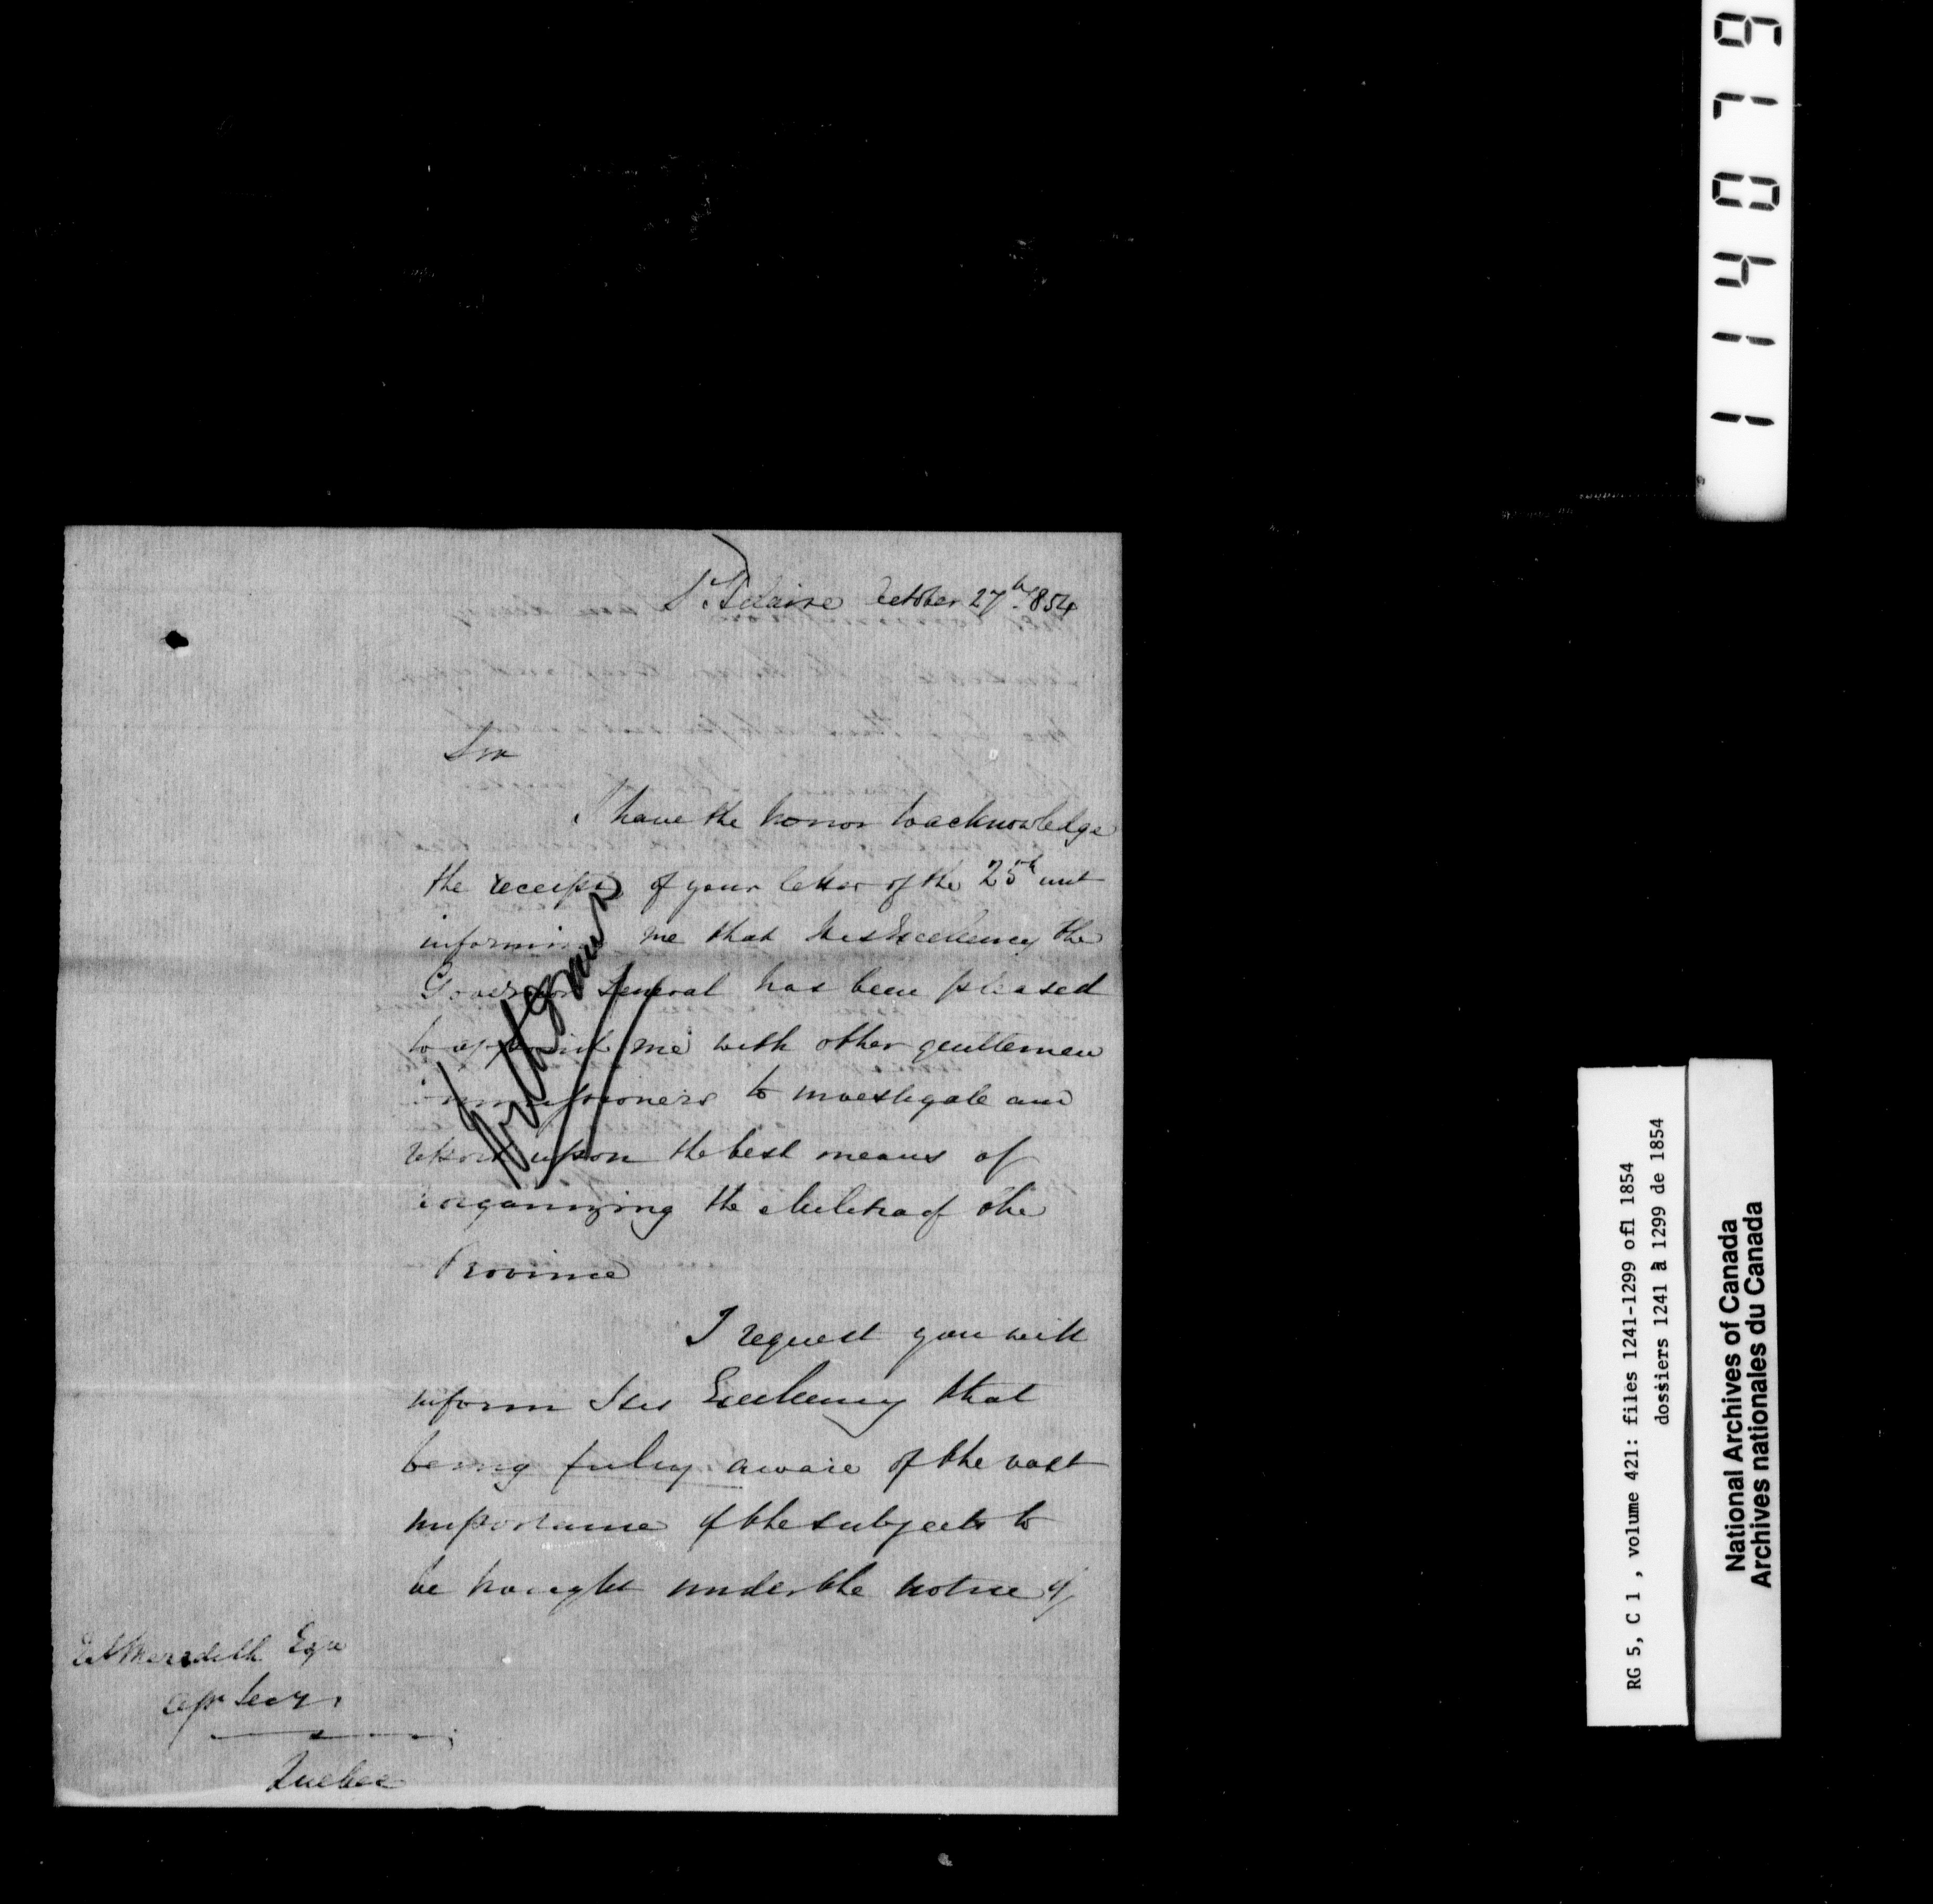 St. Hilaire October 27th 1854
Sir
I have the honor to acknowledge
the receipt of your letter of the 25th inst
informing me that His Excellency the
Governor General has been pleased
to appoint me with other gentlemen
Commissioners to investigate and
report upon the best means of
organizing the Militia of the
Province
I request you will
inform His Excellency that
being fully aware of the vast
importance of the subjects to
be brought under the notice of
Meredith Esqr
Secy.
Quebec
RG 5, C 1 , volume 421: files 1241-1299 ofl 1854
dossiers 1241 à 1299 de 1854
National Archives of Canada
Archives nationales du Canada